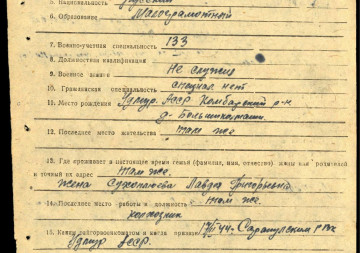 5. Национальность русский
6. Образование Малограмотной
7. Военно-учетная специальность 133
8. Должностная квалификация
9. Военное звание Не служил
10. Гражданская специальность специал. нет
11. Место рождения Удмур. АССР Камбарский р-н
д.
12. Последнее место жительства там же
13. Где проживает в настоящее время семья (фамилия, имя, отчество), жены или родителей
и точный их адрес там же.
жена Григорьевна
14. Последнее место работы и должность там же.
колхозник
15. Каким райгорвоенкоматом и когда призван Сарапульским РВК
Удмур АССР.